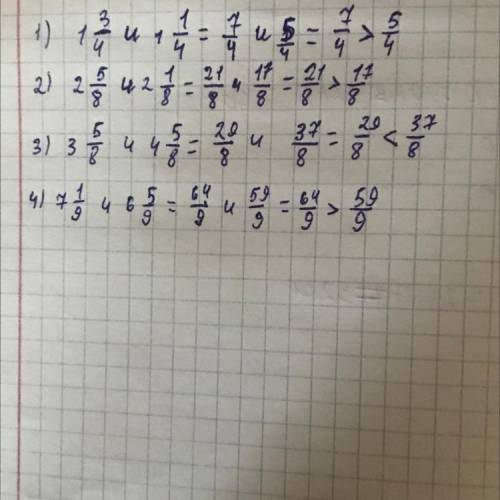 1) 1 3/4 и 1 1/4 = 7/4 и 5/4 = 7/4 > 5/4
2) 2 5/8 и 2 1/8 = 21/8 и 17/8 = 21/8 > 17/8
3) 3 5/8 и 4 5/8 = 29/8 и 37/8 = 29/8 < 37/8
4) 7 1/9 и 6 5/9 = 64/9 и 59/9 = 64/9 > 59/9